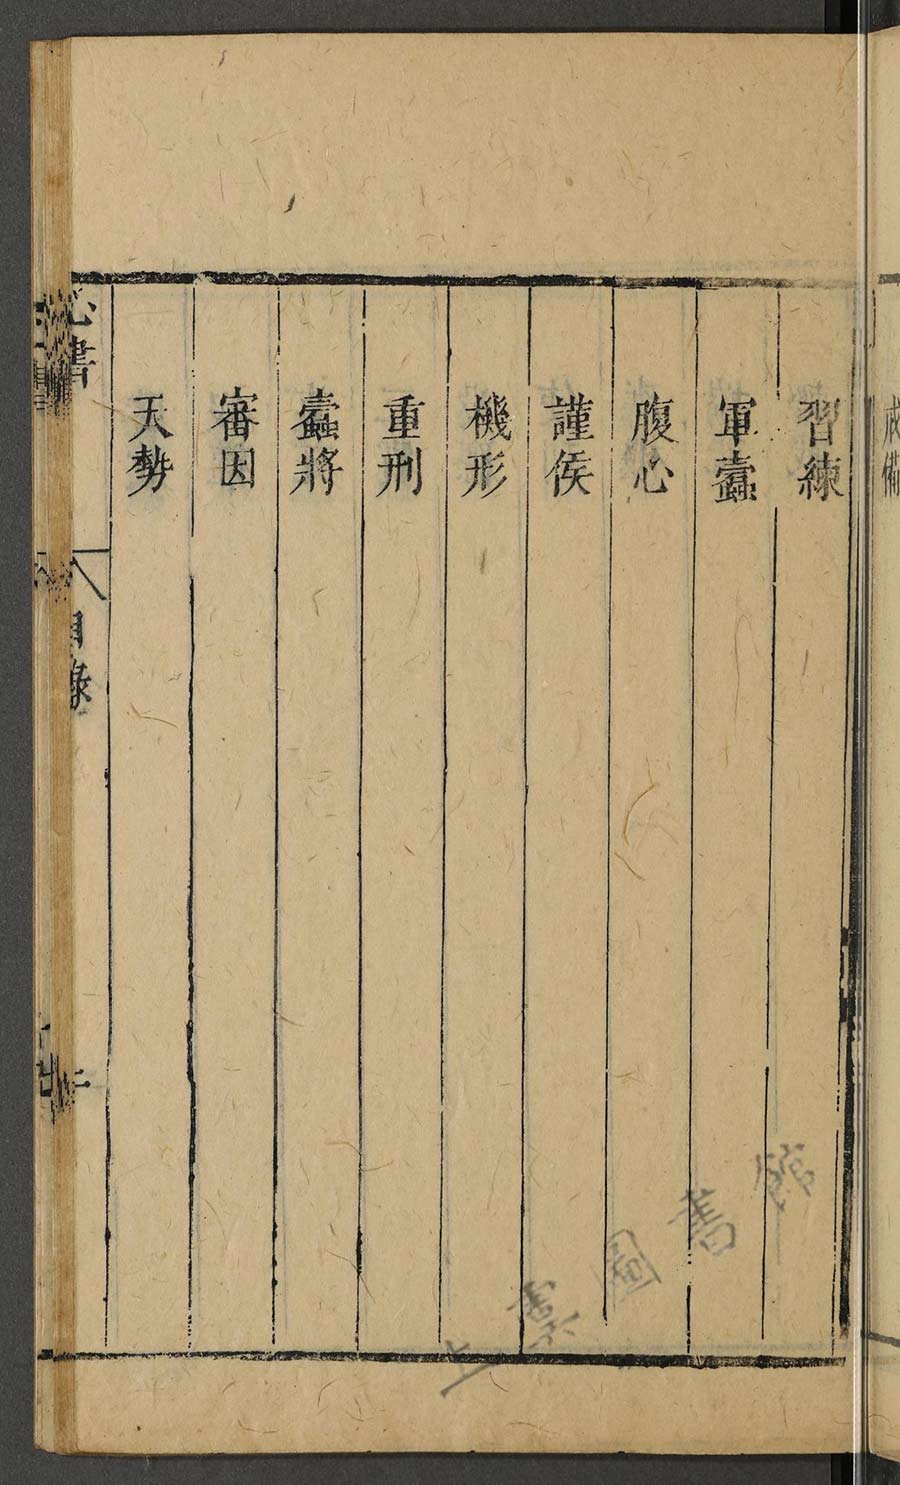 習練
軍蠹
腹心
謹侯
機形
重刑
蠹將
審因
天勢
心書
目錄
二
上圖書館